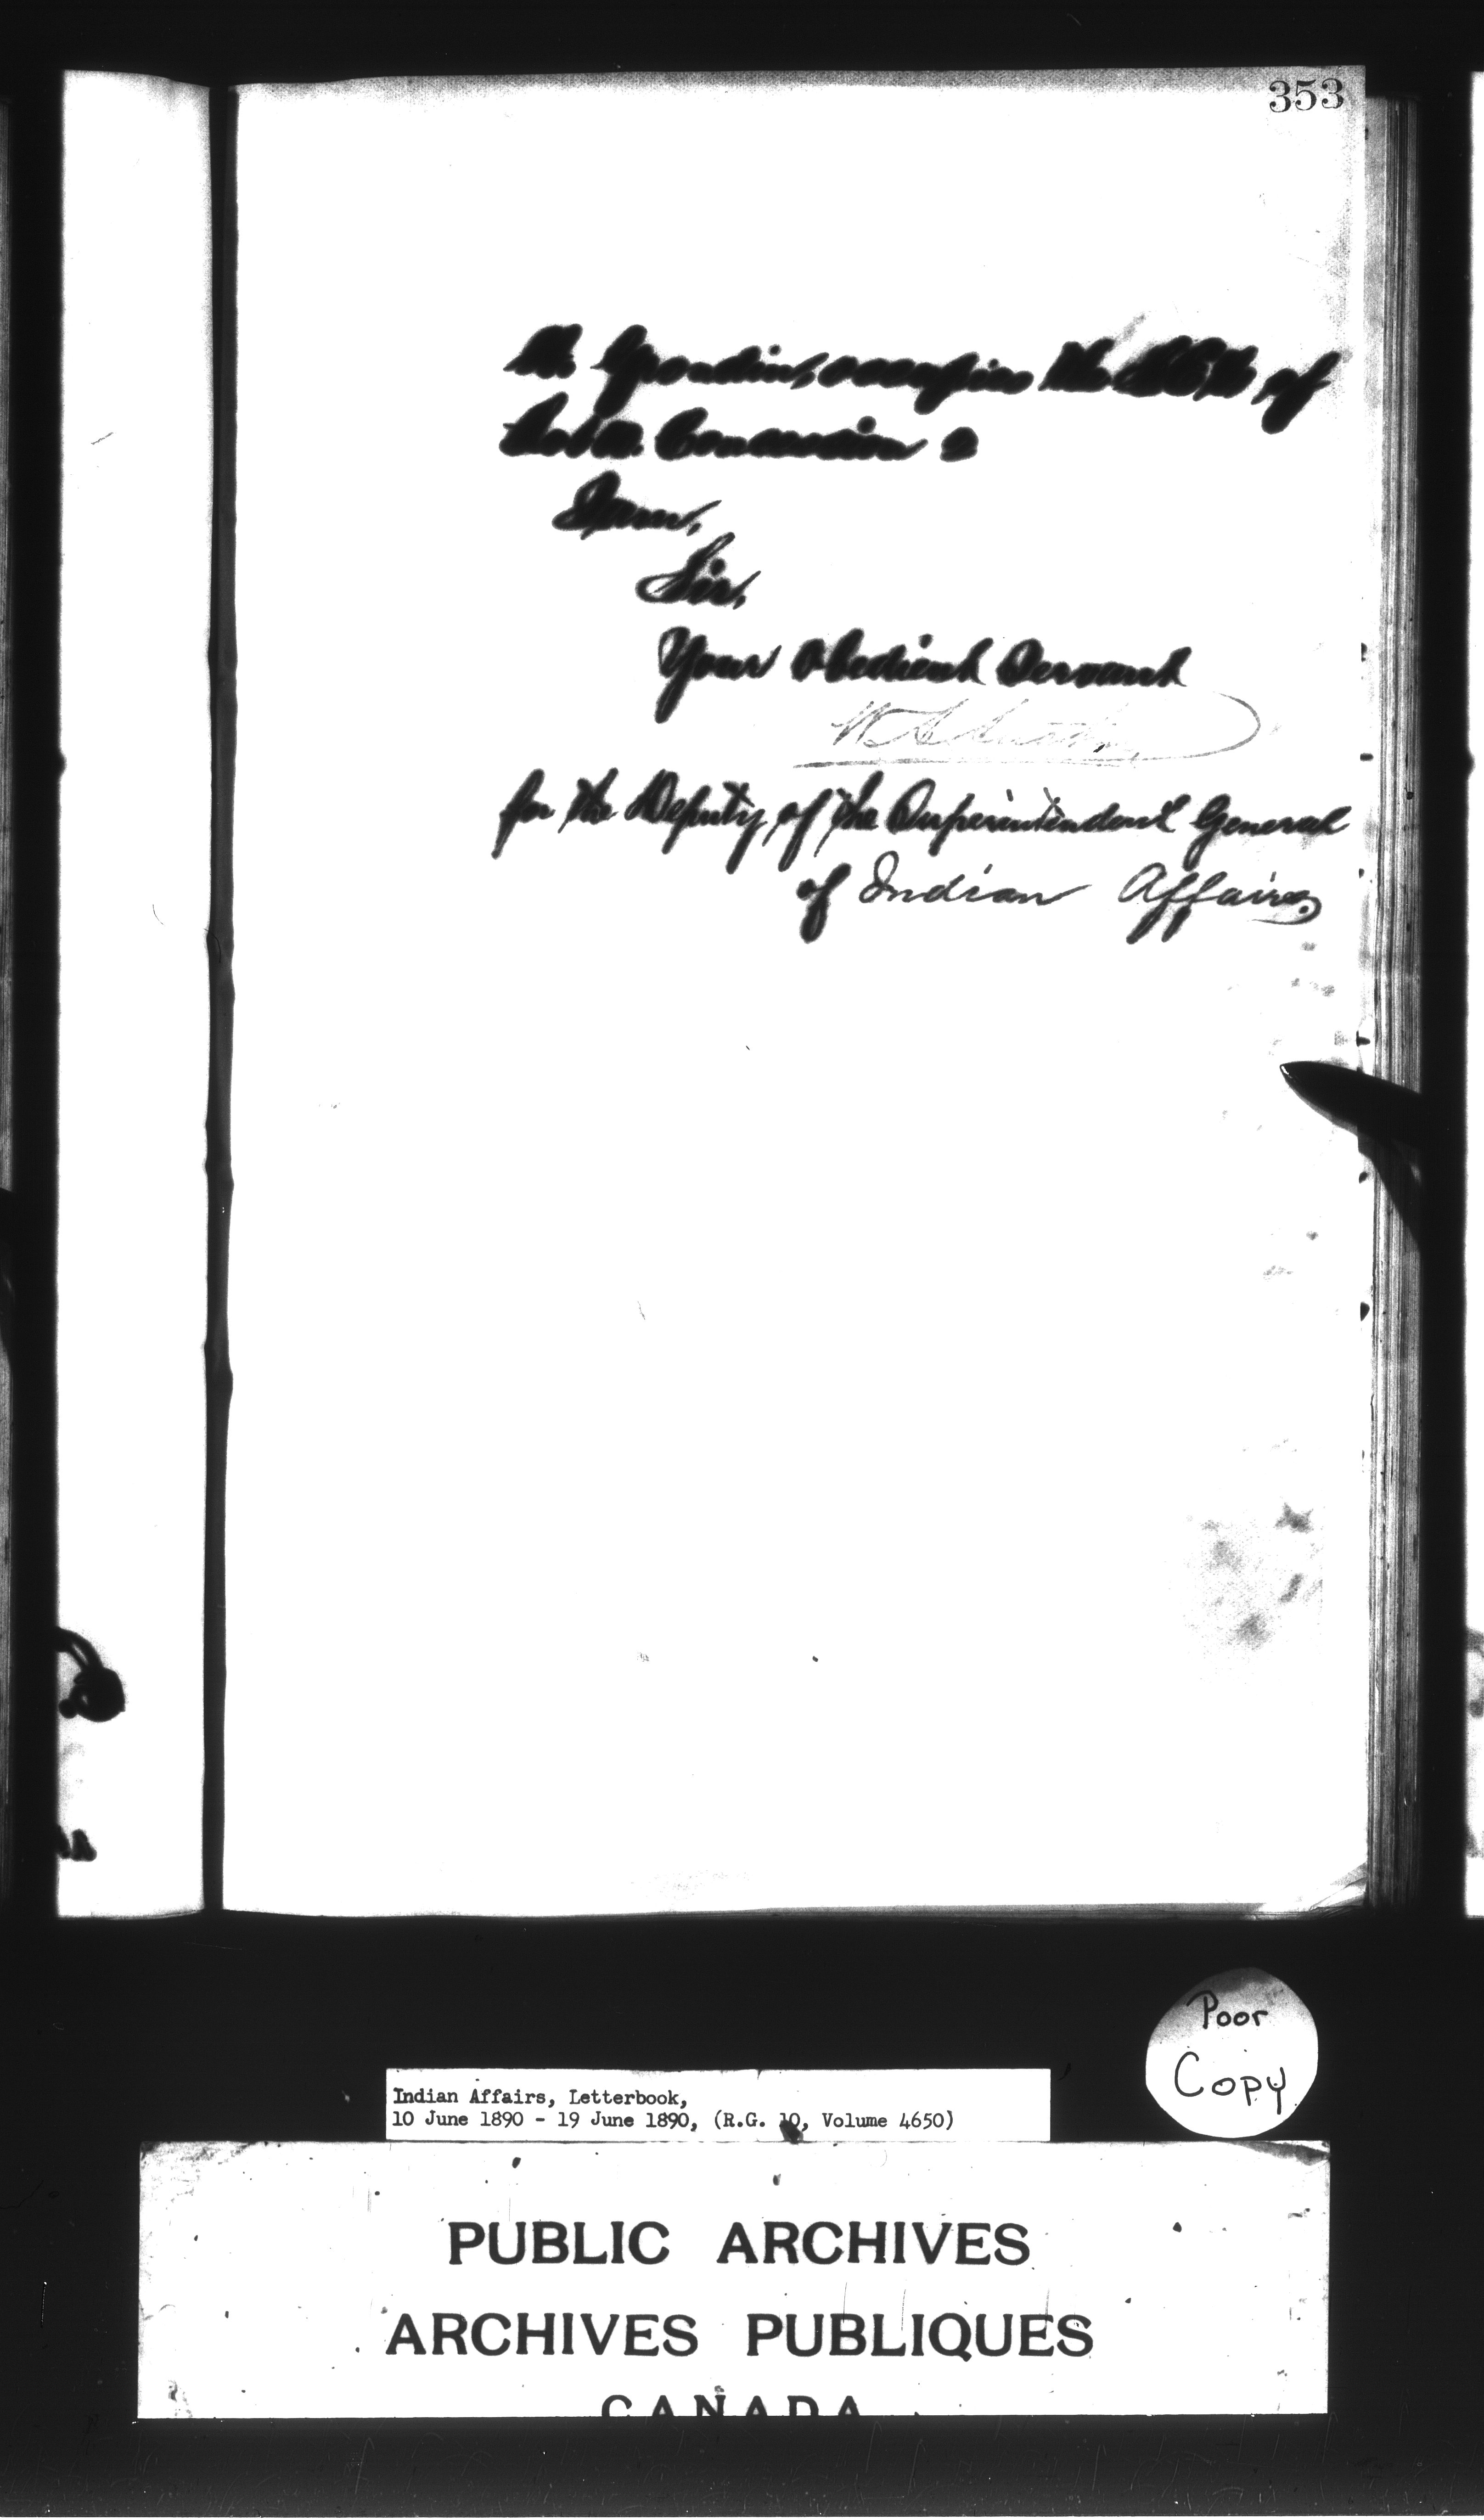 353
in question, occupies the of
Lot Concession 2
I am,
Sir,
Your Obedient Servant
for the Deputy of the Superintendent General
of Indian Affairs.
Poor
Copy
Indian Affairs, Letterbook,
10 June 1890 - 19 June 1890, (R.G. 10, Volume 4650)
PUBLIC ARCHIVES
ARCHIVES PUBLIQUES
CANADA